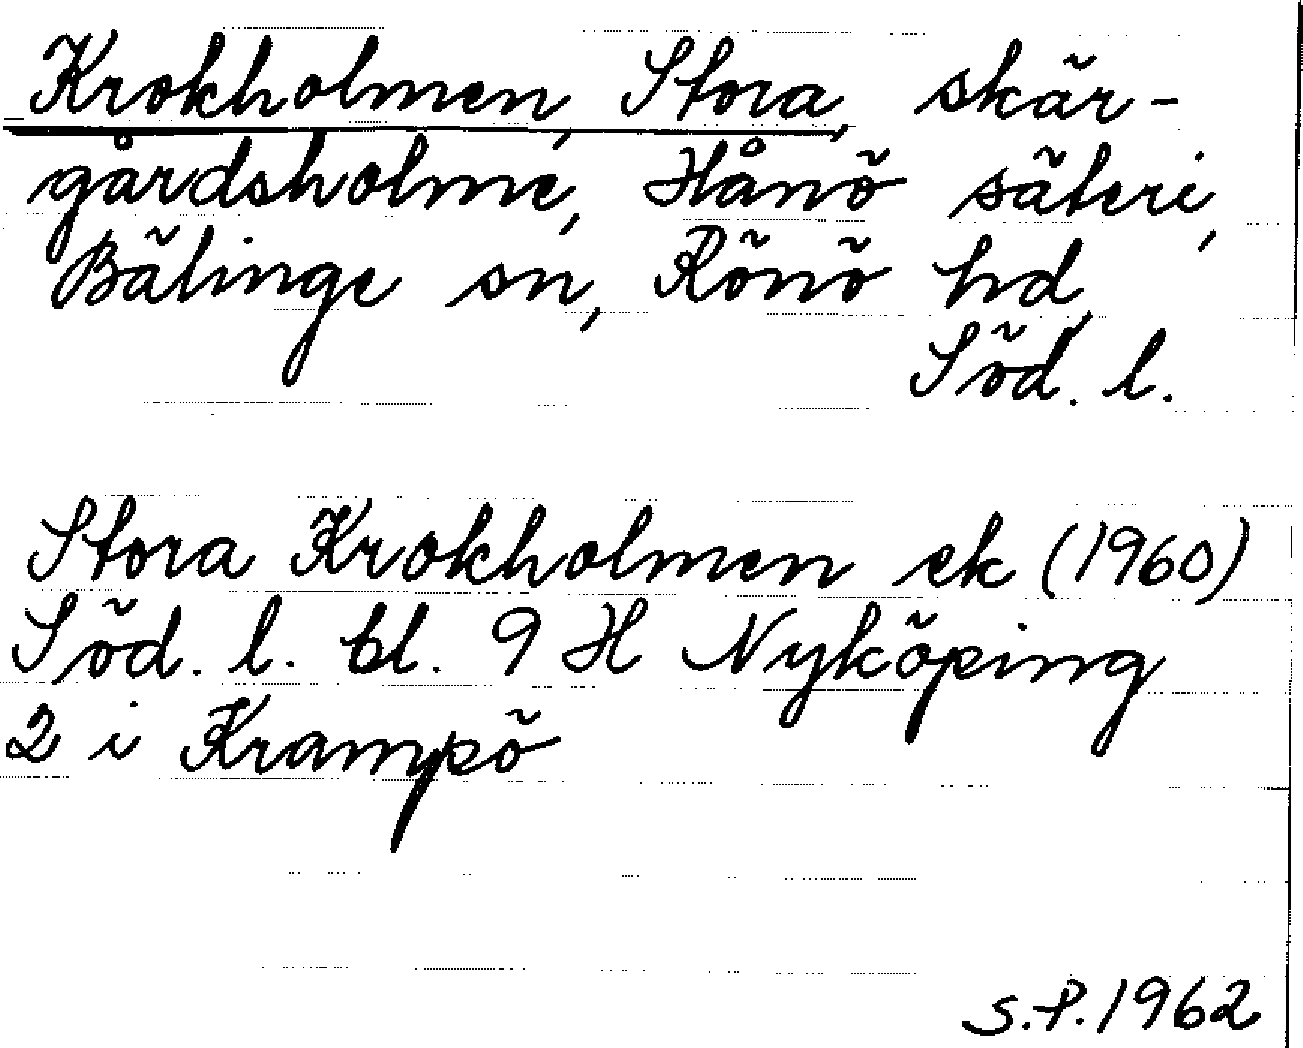 Krokholmen, Stora, skär-
gårdsholme, Hånö säteri,
Bälinge sn, Rönö hd,
Söd. l.
Stora Krokholmen ek (1960)
Söd. l. bl. 9 H Nyköping
2 i Krampö
S.P. 1962